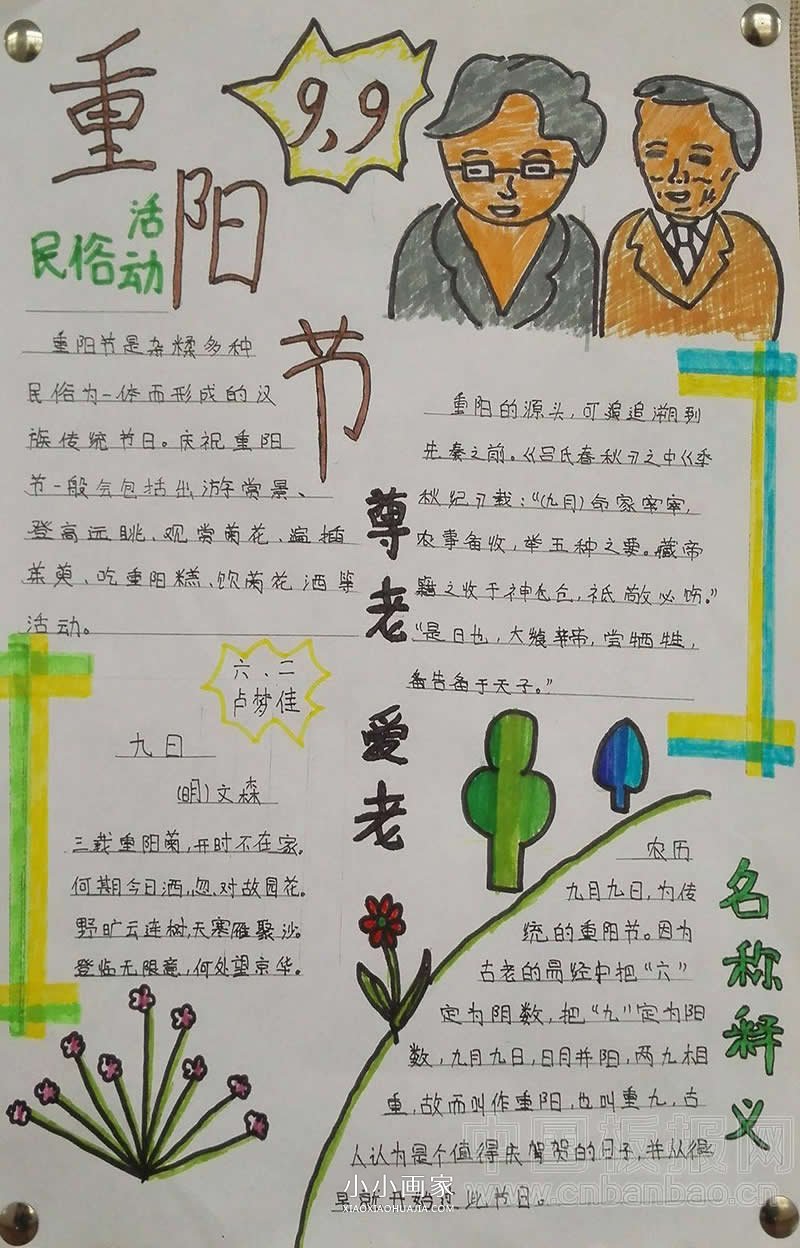 重阳节
9,9
民俗活动
重阳节是杂糅多种
民俗为一体而形成的汉
族传统节日。庆祝重阳
节一般会包括出游赏景、
登高远眺、观赏菊花、遍插
茱萸、吃重阳糕、饮菊花洒等
活动。
尊老爱老
重阳的源头,可追追溯到
先秦之前。《吕氏春秋》之中《季
秋纪》载:“(九月)命家宰,
农事备收,举五种之要。藏帝
籍之收于神仓,祗敬必饬。”
“是日也,大飨帝,尝牺牲,
备告备于天子。”
六、二
卢梦佳
九日
(明)文森
三载重阳菊,开时不在家。
何期今日洒,忽对故园花。
野旷云连树,天寒雁聚沙。
登临无限意,何处望京华。
名称释义
农历
九月九日,为传
统的重阳节。因为
古老的易经中把“六”
定为阴数,把“九”定为阳
数,九月九日,日月并阳,两九相
重,故而叫作重阳,也叫重九,古
人认为是个值得庆贺的日子,并从很
早就开始过此节日。
中国板报网
www.cnbanbao.cn
小小画家
XIAOXIAOHUAJIA.COM